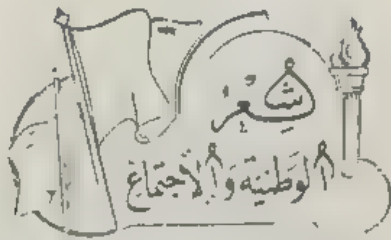 شِعْرُ
الوَطنيَّة وَالاجتمَاع